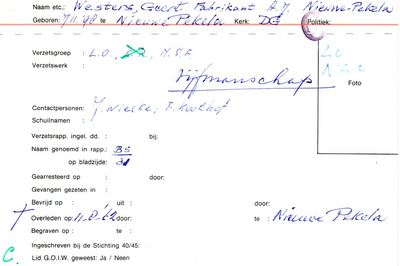 Naam etc.: Westers, Geert Fabrikant A.Y. Nieuwe-Pekela
Geboren: 7.11.'98 te Nieuwe Pekela Kerk: DG Politiek:
Verzetsgroep : L.O., M.S.F
Verzetswerk :
Vijfmanschap
Foto
Contactpersonen:
Schuilnaam :
Verzetsrapp. ingel. dd. : bij:
Naam genoemd in rapp.: BS
op bladzijde: 31
Gearresteerd op : door:
Gevangen gezeten in :
Bevrijd op : uit : door:
Overleden op : 11-8-'62 door: te : Nieuwe Pekela
Begraven op : te :
Ingeschreven bij de Stichting 40/45:
C.
Lid G.O.I.W. geweest: Ja / Neen